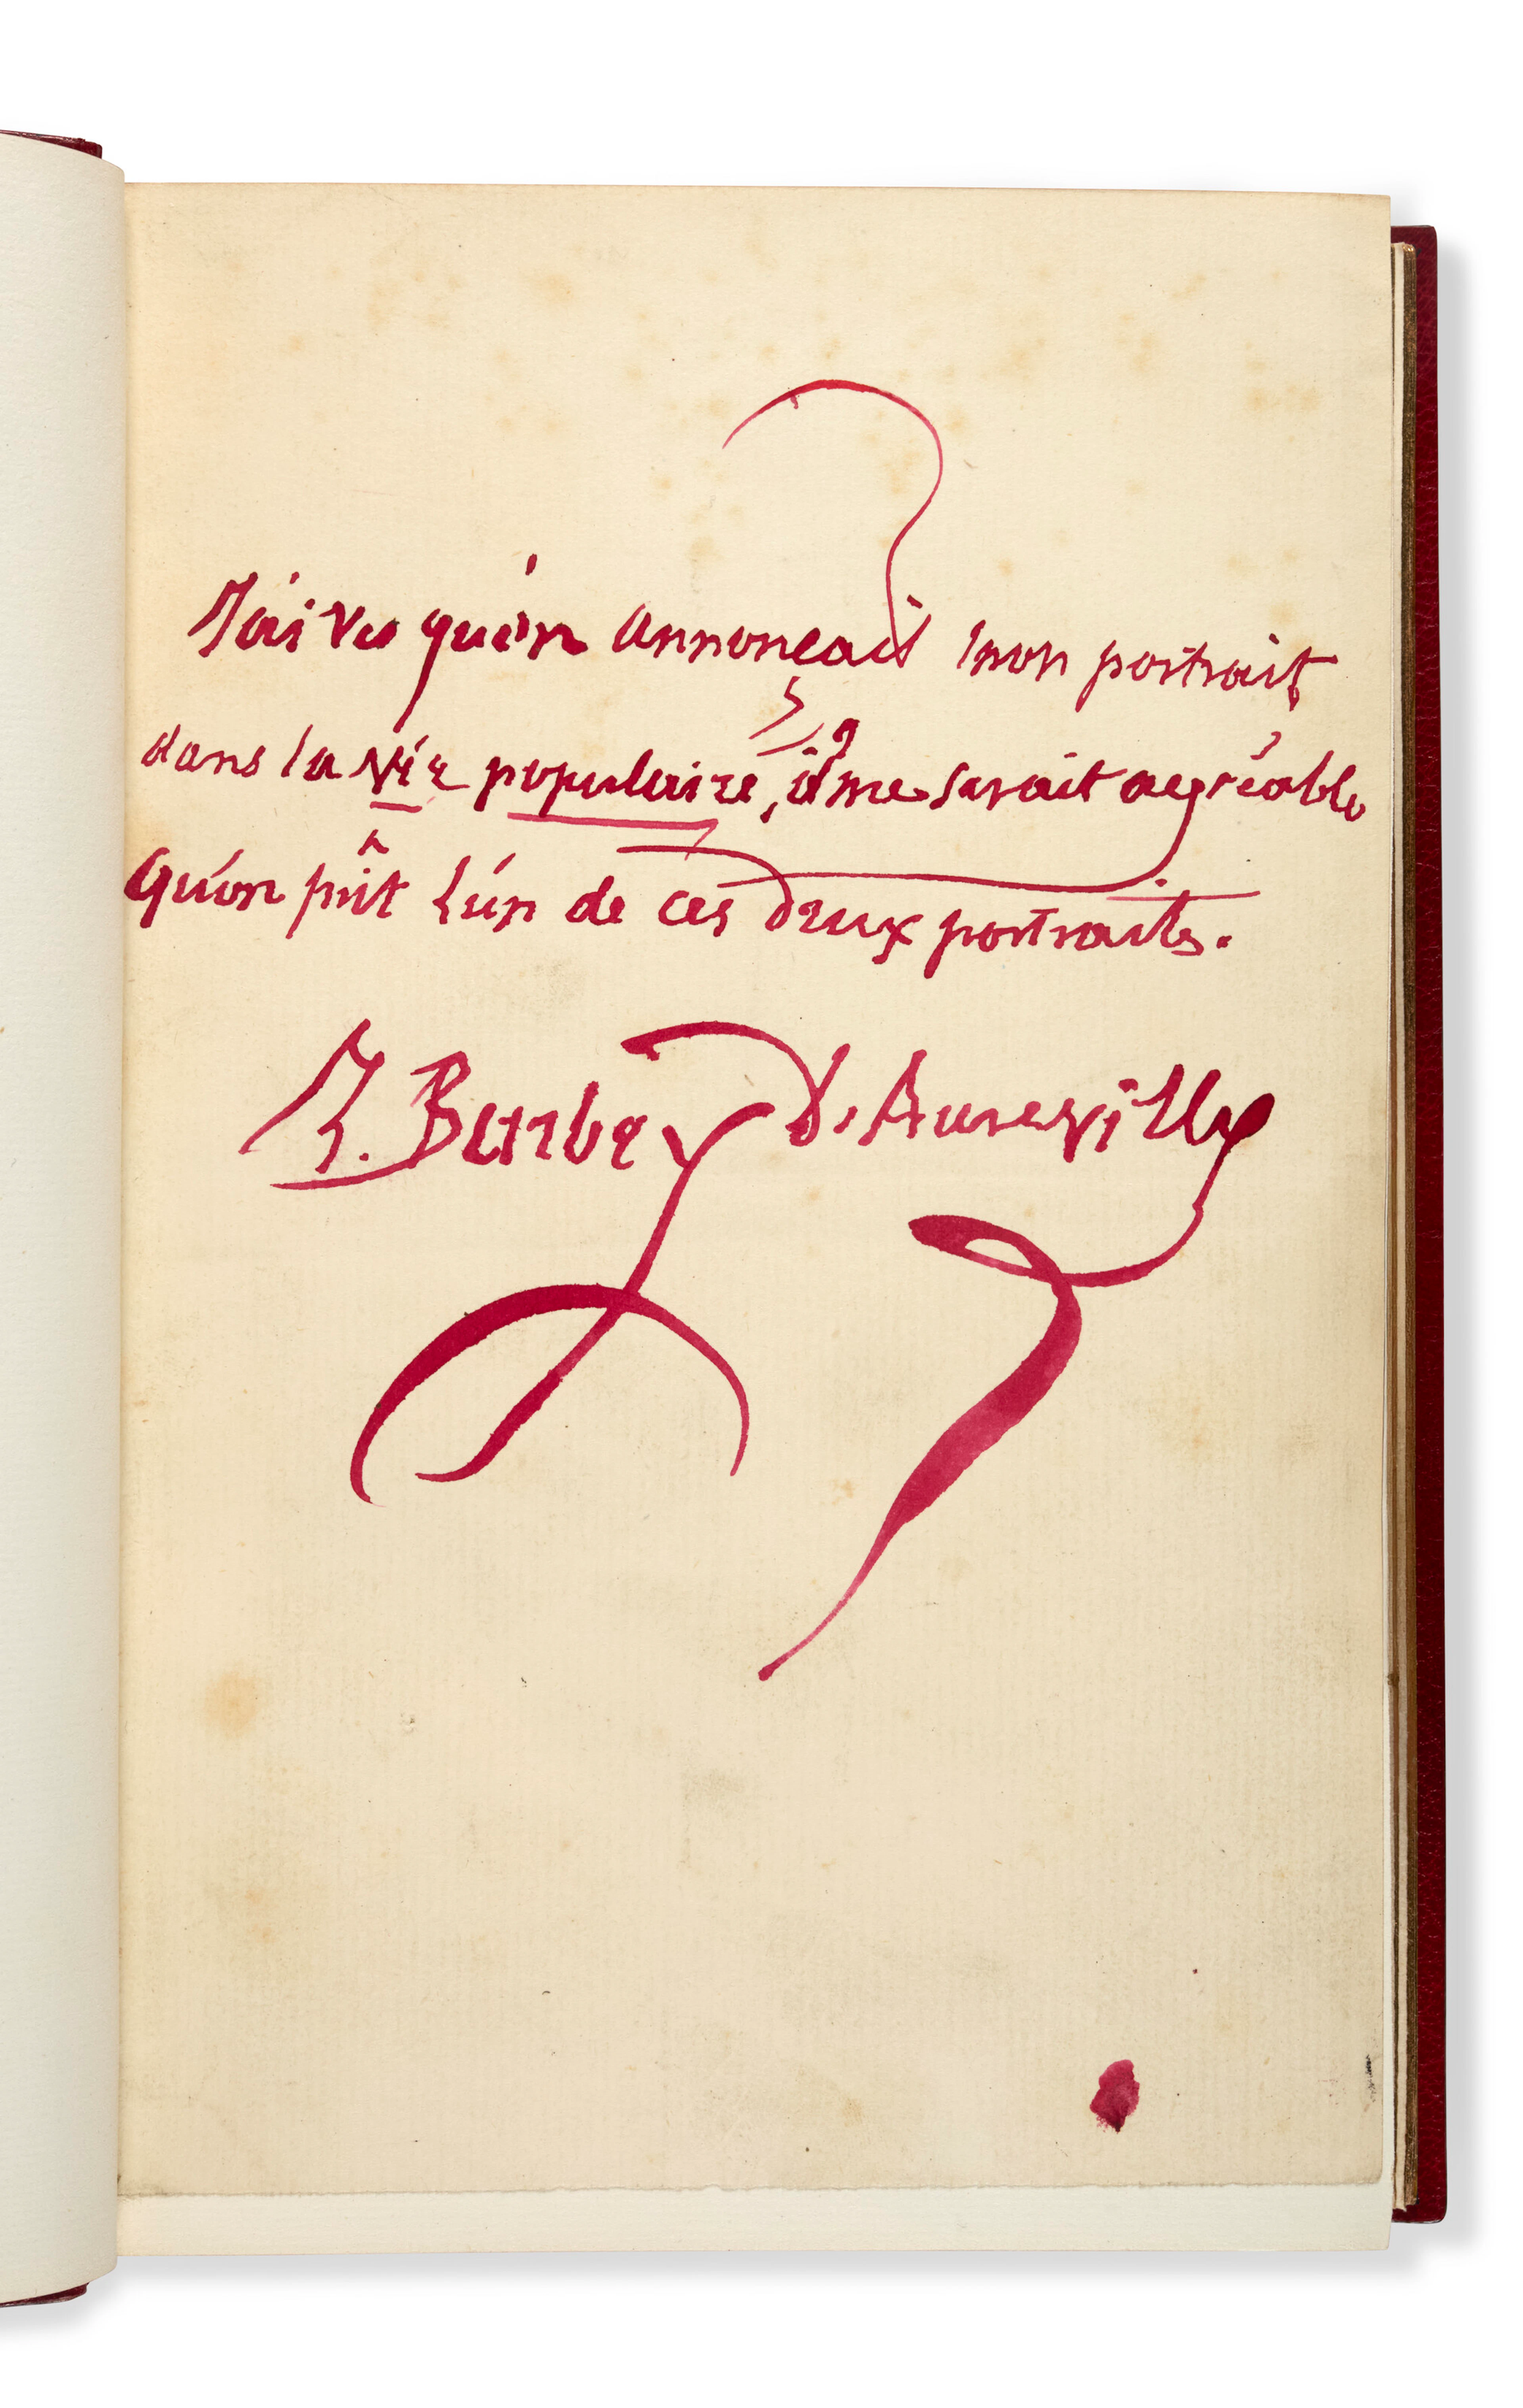 J'ai vu qu'on annonçait mon portrait
dans la Vie populaire, il me serait agréable
qu'on prît l'un de ces deux portraits.
J. Barbey d'Aurevilly